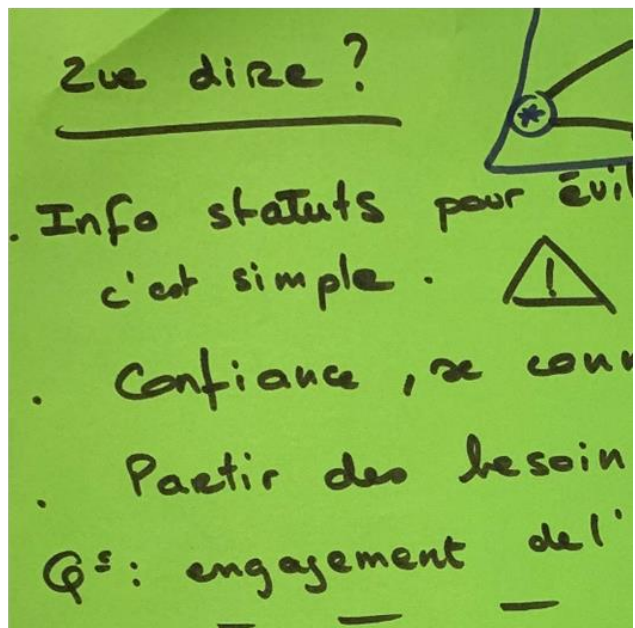 Que dire ?
. Info statuts pour évi
c'est simple.
!
. Confiance, se conn
. Partir des besoin
Qs : engagement de l'